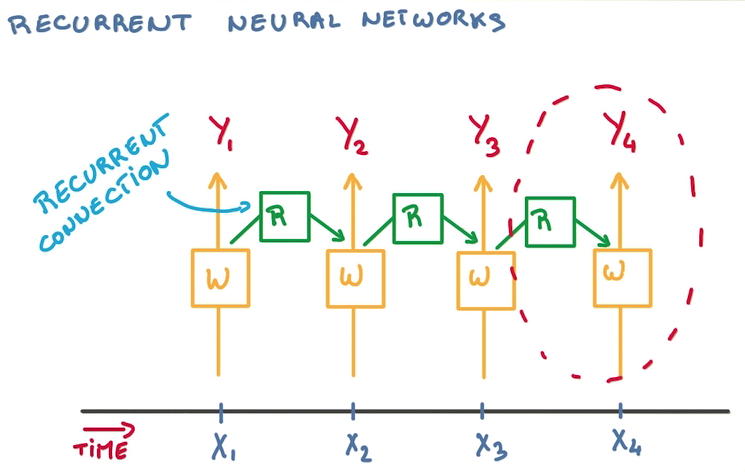 RECURRENT NEURAL NETWORKS
Y1 Y2 Y3 Y4
RECURRENT
CONNECTION
R R R
W W W W
TIME
X1 X2 X3 X4